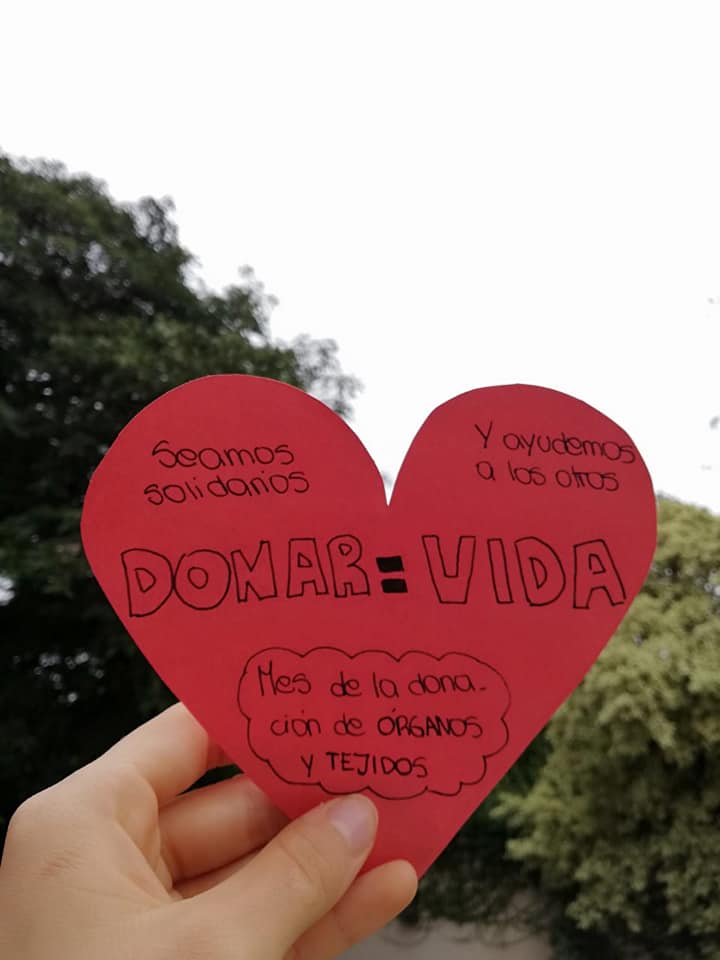 Seamos
solidarios
Y ayudemos
a los otros
DONAR = VIDA
Mes de la dona-
ción de ÓRGANOS
y TEJIDOS